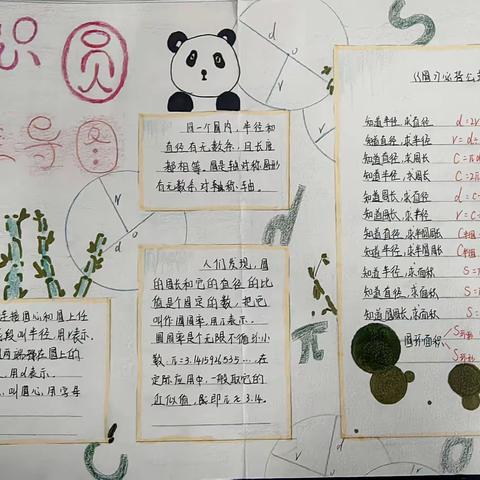 识 圆
导图
同一个圆内,半径和
直径有无数条,且长度
都相等。圆是轴对称图形
有无数条对轴称轴。
连接圆心和圆上任
线段叫半径,用r表示。
且两端都在圆上的
,用d表示。
,叫圆心,用字母
人们发现,圆
的周长和它的直径的比
值是个固定的数,把它
叫作圆周率,用π表示。
圆周率是个无限不循环小
数,π=3.1415926535...,在
实际应用中,一般取它的
近似值,即π≈3.14。
圆习必备公
知道半径,求直径 d=2r
知道直径,求半径 r=d÷
知道直径,求周长 C=πd
知道半径,求周长 C=2π
知道周长,求直径 d=C÷
知道周长,求半径 r=C÷
知道直径,求半圆周长 C半圆
知道半径,求半圆周长 C半圆
知道半径,求面积 S=π
知道直径,求面积 S=
知道周长,求面积 S=
圆环面积 S环形
S环形
r
d
o
π